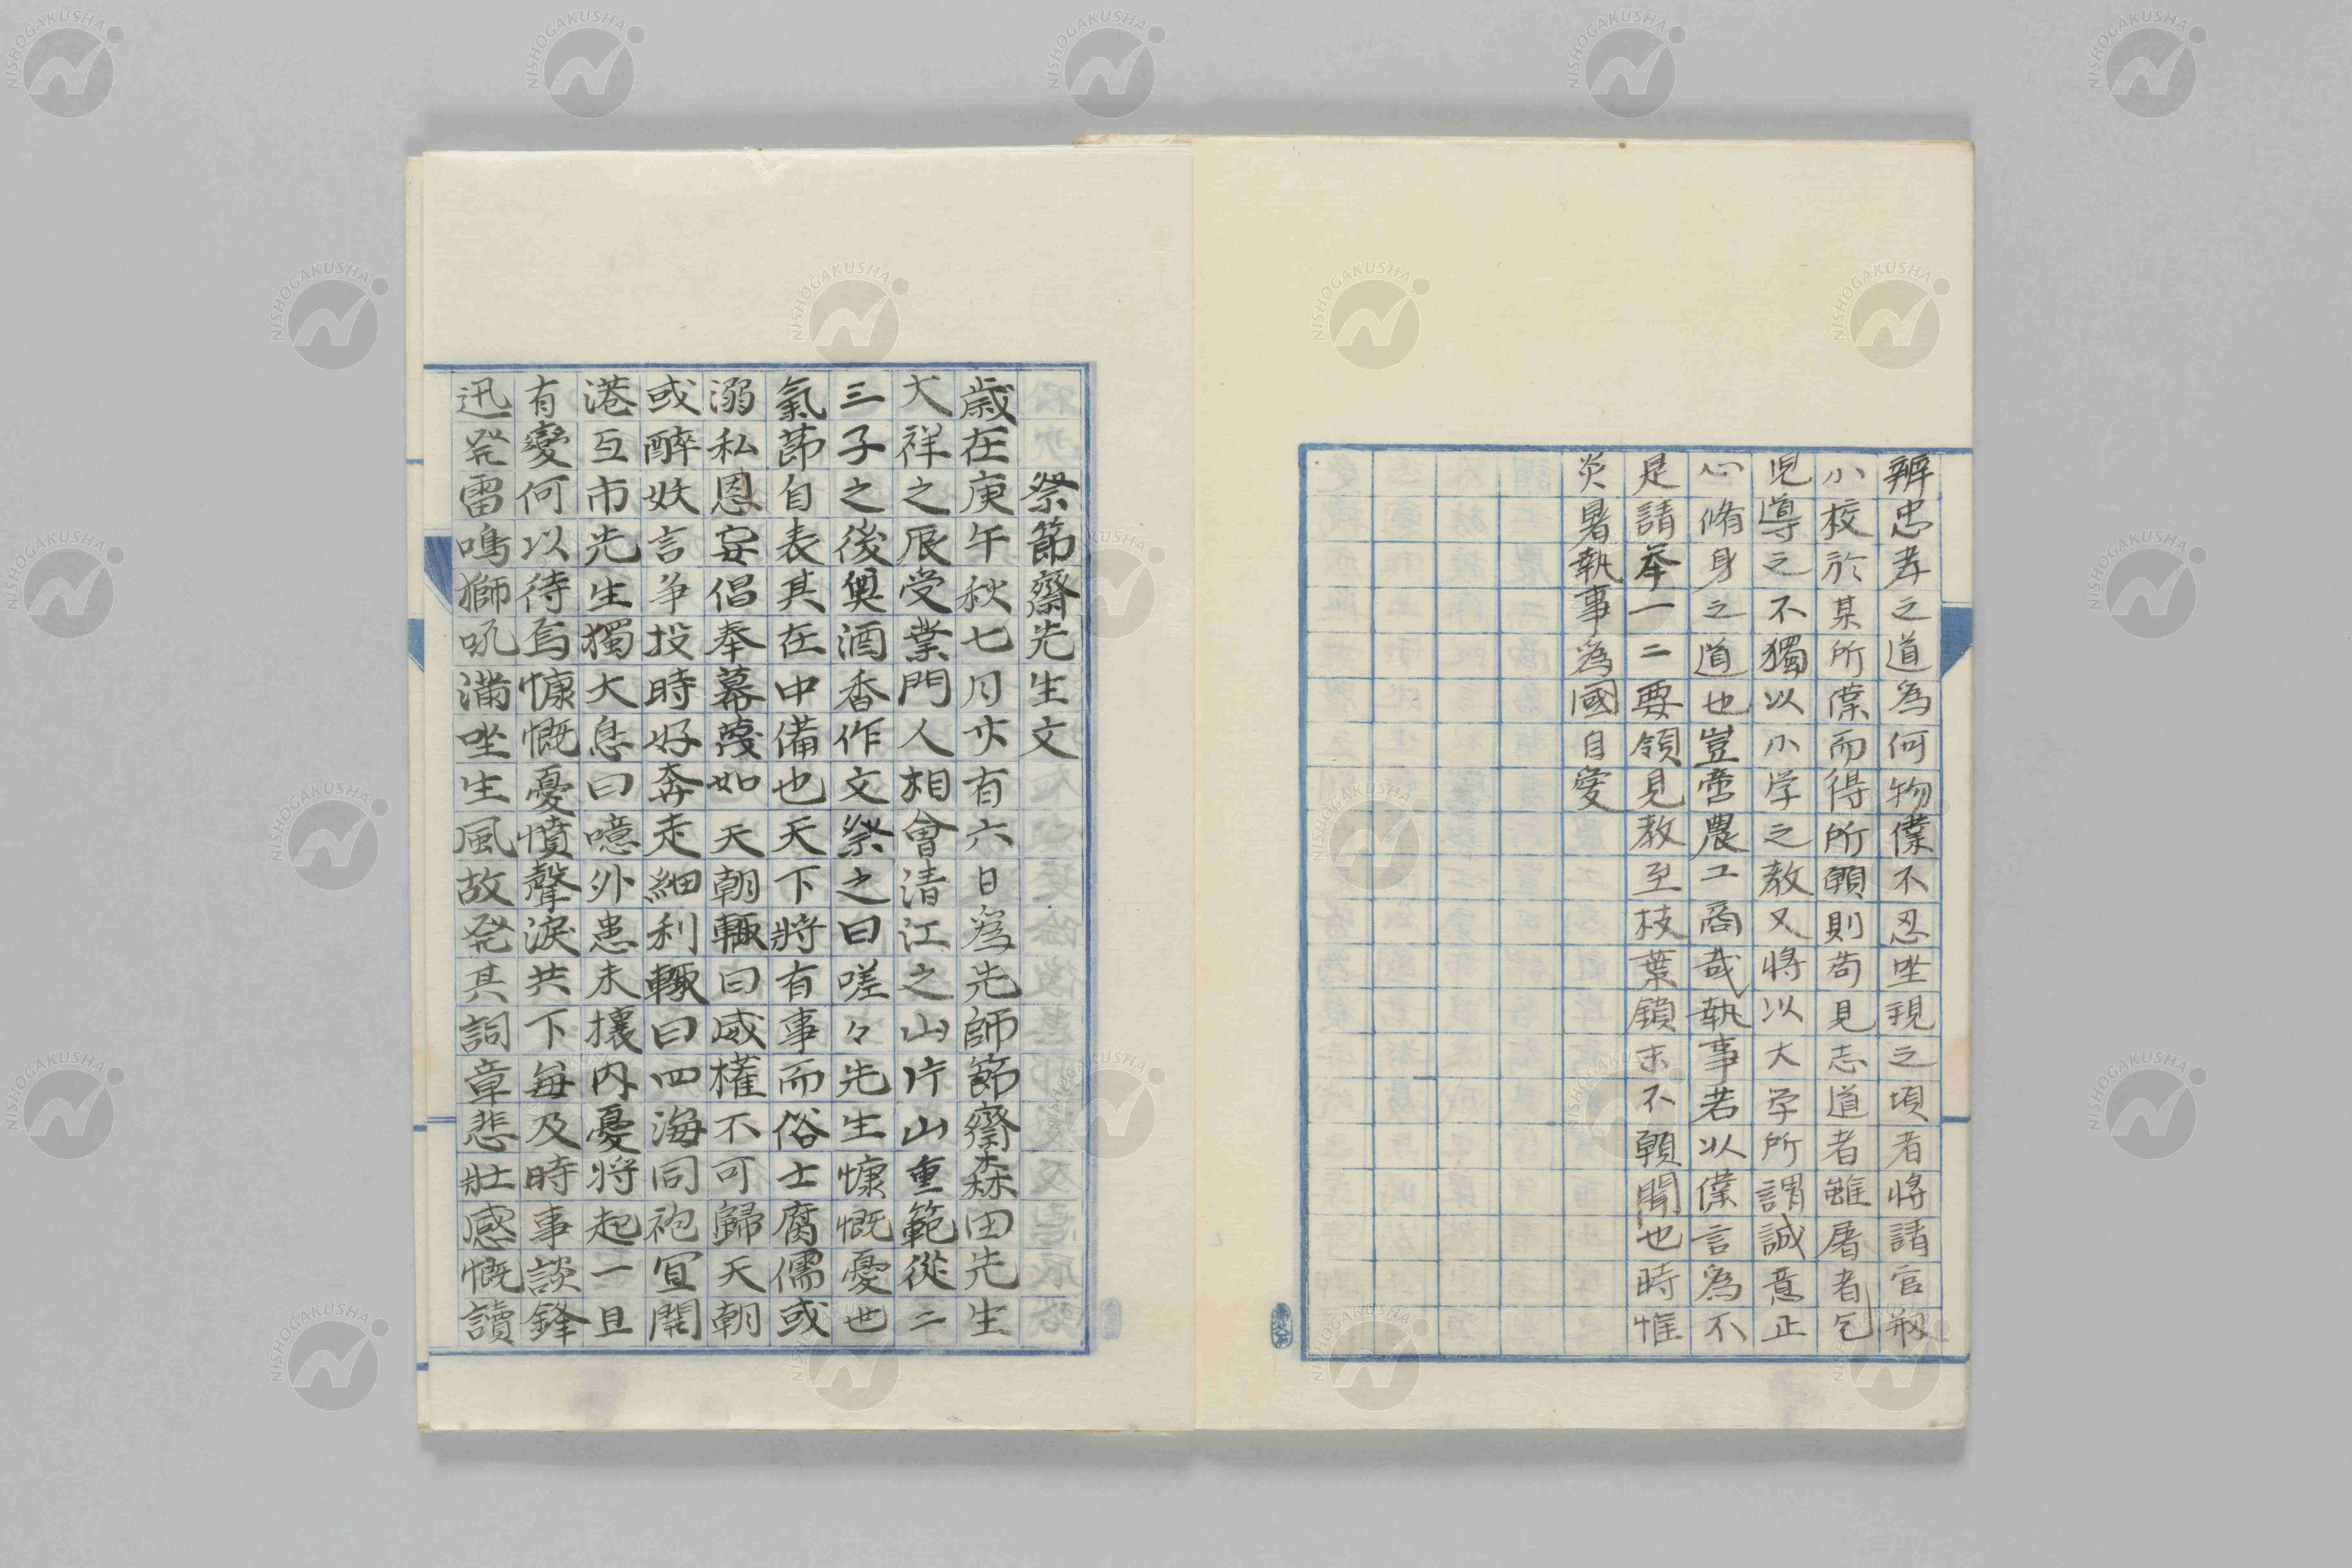 辨忠孝之道為何物僕不忍坐視之頃者將請官刱
小校於某所僕而得所願則苟見志道者雖屠者乞
児導之不獨以小学之教又将以大学所謂誠意正
心脩身之道也豈啻農工商哉執事若以僕言為不
是請挙一二要領見教至枝葉鎖末不願聞也時惟
炎暑執事為國自愛
祭節齋先生文
歳在庚午秋七月亦有六日為先師節齋森田先生
大祥之辰受業門人相會清江之山片山重範從二
三子之後奠酒香作文祭之曰嗟々先生慷慨憂世
氣節自表其在中備也天下將有事而俗士腐儒或
溺私恩妄倡奉幕蔑如天朝輙曰威權不可歸天朝
或醉妖言争投時好奔走細利輙曰四海同袍冝開
港互市先生獨大息曰噫外患未攘内憂将起一旦
有變何以待焉慷慨憂憤聲淚共下每及時事談鋒
迅発雷鳴獅吼滿坐生風故発其詞章悲壯感慨讀